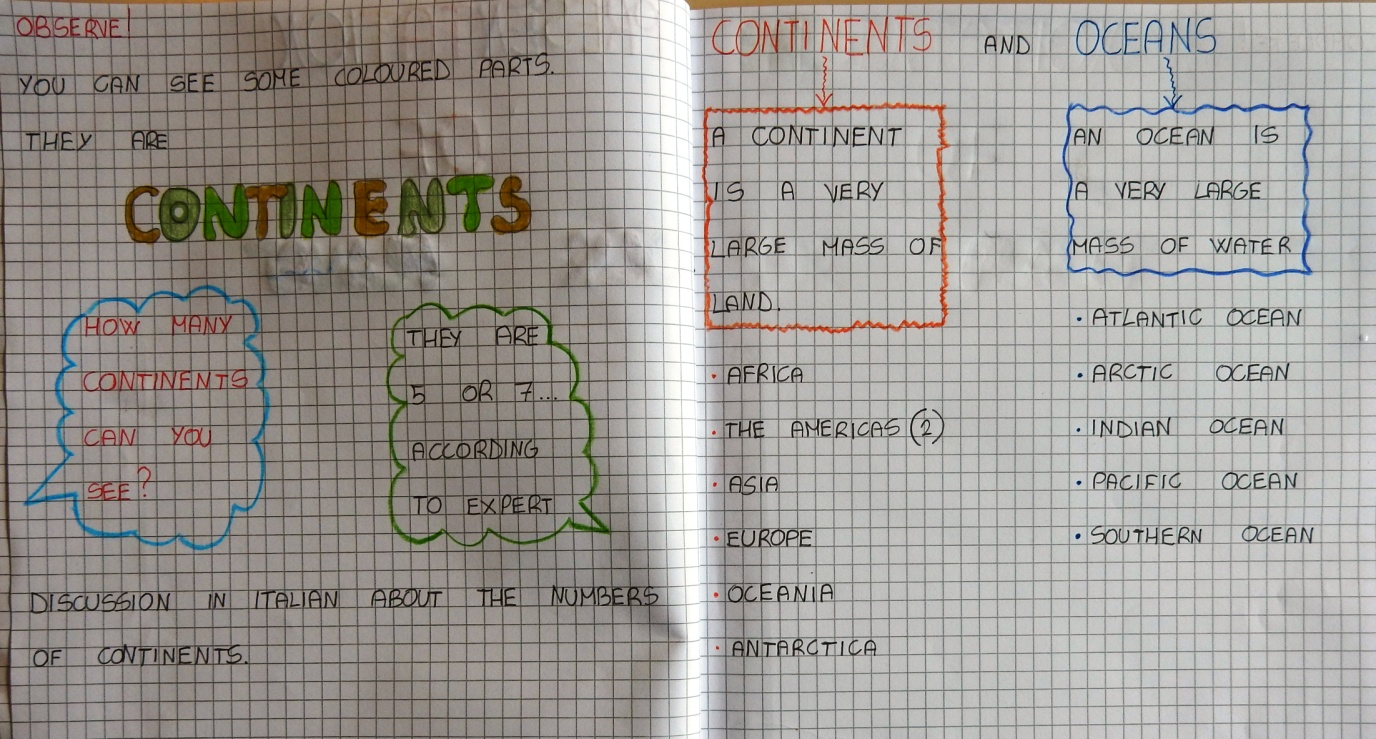 OBSERVE!
YOU CAN SEE SOME COLOURED PARTS.
THEY ARE
CONTINENTS
HOW MANY
CONTINENTS
CAN YOU
SEE?
THEY ARE
5 OR 7...
ACCORDING
TO EXPERT
DISCUSSION IN ITALIAN ABOUT THE NUMBERS
OF CONTINENTS.
CONTINENTS AND OCEANS
A CONTINENT
IS A VERY
LARGE MASS OF
LAND.
• AFRICA
• THE AMERICAS (2)
• ASIA
• EUROPE
• OCEANIA
• ANTARCTICA
AN OCEAN IS
A VERY LARGE
MASS OF WATER
• ATLANTIC OCEAN
• ARCTIC OCEAN
• INDIAN OCEAN
• PACIFIC OCEAN
• SOUTHERN OCEAN